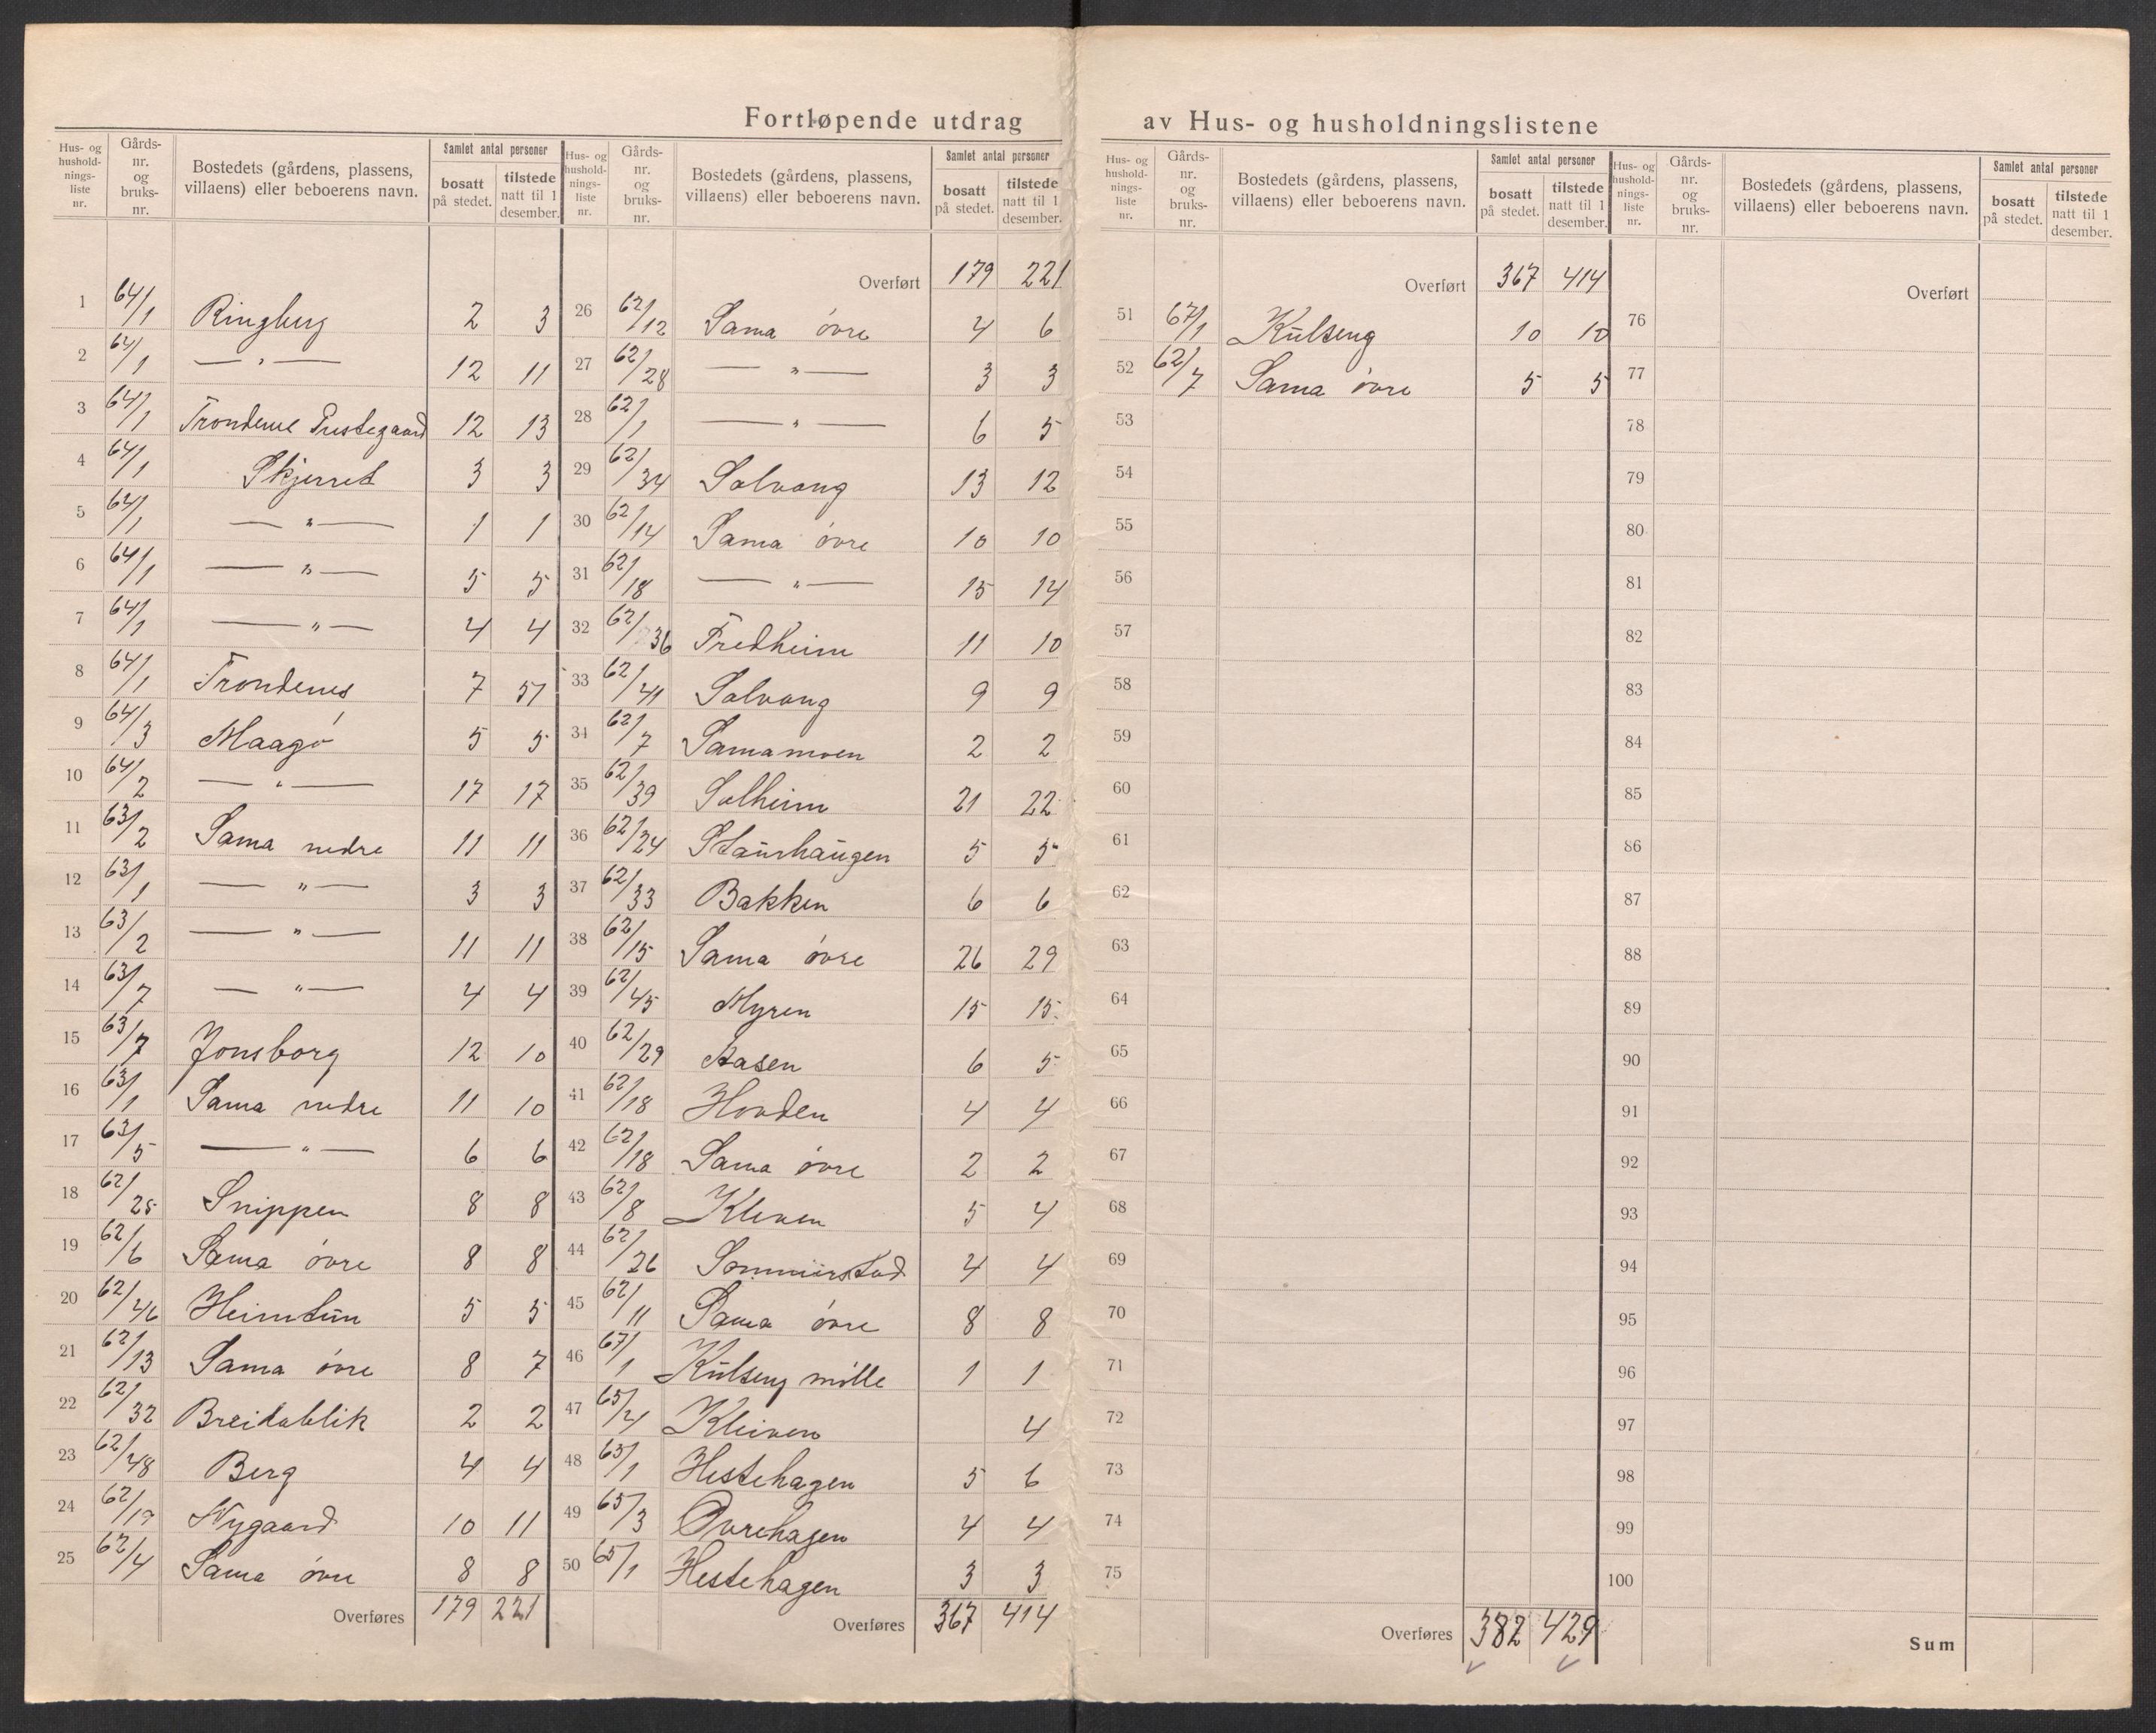 Fortløpende utdrag av Hus- og husholdningslistene
Hus- og husholdnings-liste nr. | Gårds-nr. og bruks-nr. | Bostedets (gårdens, plassens, villaens) eller beboerens navn. | Samlet antal personer | bosatt på stedet. | tilstede natt til 1 desember.
1 64/1 Ringberg 2 3
2 64/1 — " — 12 11
3 64/1 Trondenes Prestegaard 12 13
4 64/1 Skjerret 3 3
5 64/1 — " — 1 1
6 64/1 — " — 5 5
7 64/1 — " — 4 4
8 64/1 Trondenes 7 51
9 64/3 Maagø 5 5
10 64/2 — " — 17 17
11 63/2 Sama nedre 11 11
12 63/1 — " — 3 3
13 63/2 — " — 11 11
14 63/7 — " — 4 4
15 63/7 Jonsborg 12 10
16 63/1 Sama nedre 11 10
17 63/5 — " — 6 6
18 62/25 Snippen 8 8
19 62/6 Sama øvre 8 8
20 62/46 Heimtun 5 5
21 62/13 Sama øvre 8 7
22 62/32 Breidablik 2 2
23 62/48 Berg 4 4
24 62/19 Nygaard 10 11
25 62/4 Sama øvre 8 8
Overføres 179 221
Hus- og husholdnings-liste nr. | Gårds-nr. og bruks-nr. | Bostedets (gårdens, plassens, villaens) eller beboerens navn. | Samlet antal personer | bosatt på stedet. | tilstede natt til 1 desember.
Overført 179 221
26 62/12 Sama øvre 4 6
27 62/28 — " — 3 3
28 62/1 — " — 6 5
29 62/34 Solvang 13 12
30 62/14 Sama øvre 10 10
31 62/18 — " — 15 14
32 62/36 Fredheim 11 10
33 62/41 Solvang 9 9
34 62/7 Samamoen 2 2
35 62/39 Solheim 21 22
36 62/24 Staurhaugen 5 5
37 62/33 Bakken 6 6
38 62/15 Sama øvre 26 29
39 62/45 Myren 15 15
40 62/29 Aasen 6 5
41 62/18 Hovden 4 4
42 62/18 Sama øvre 2 2
43 62/8 Kleven 5 4
44 62/26 Sommerstad 4 4
45 62/11 Sama øvre 8 8
46 67/1 Kulseng mølle 1 1
47 65/4 Kleiven 4
48 65/1 Hestehagen 5 6
49 65/3 Øvrehagen 4 4
50 65/1 Hestehagen 3 3
Overføres 367 414
Hus- og husholdnings-liste nr. | Gårds-nr. og bruks-nr. | Bostedets (gårdens, plassens, villaens) eller beboerens navn. | Samlet antal personer | bosatt på stedet. | tilstede natt til 1 desember.
Overført 367 414
51 67/1 Kulseng 10 10
52 62/7 Sama øvre 5 5
53
54
55
56
57
58
59
60
61
62
63
64
65
66
67
68
69
70
71
72
73
74
75
Overføres 382 429
Hus- og husholdnings-liste nr. | Gårds-nr. og bruks-nr. | Bostedets (gårdens, plassens, villaens) eller beboerens navn. | Samlet antal personer | bosatt på stedet. | tilstede natt til 1 desember.
Overført
76
77
78
79
80
81
82
83
84
85
86
87
88
89
90
91
92
93
94
95
96
97
98
99
100
Sum